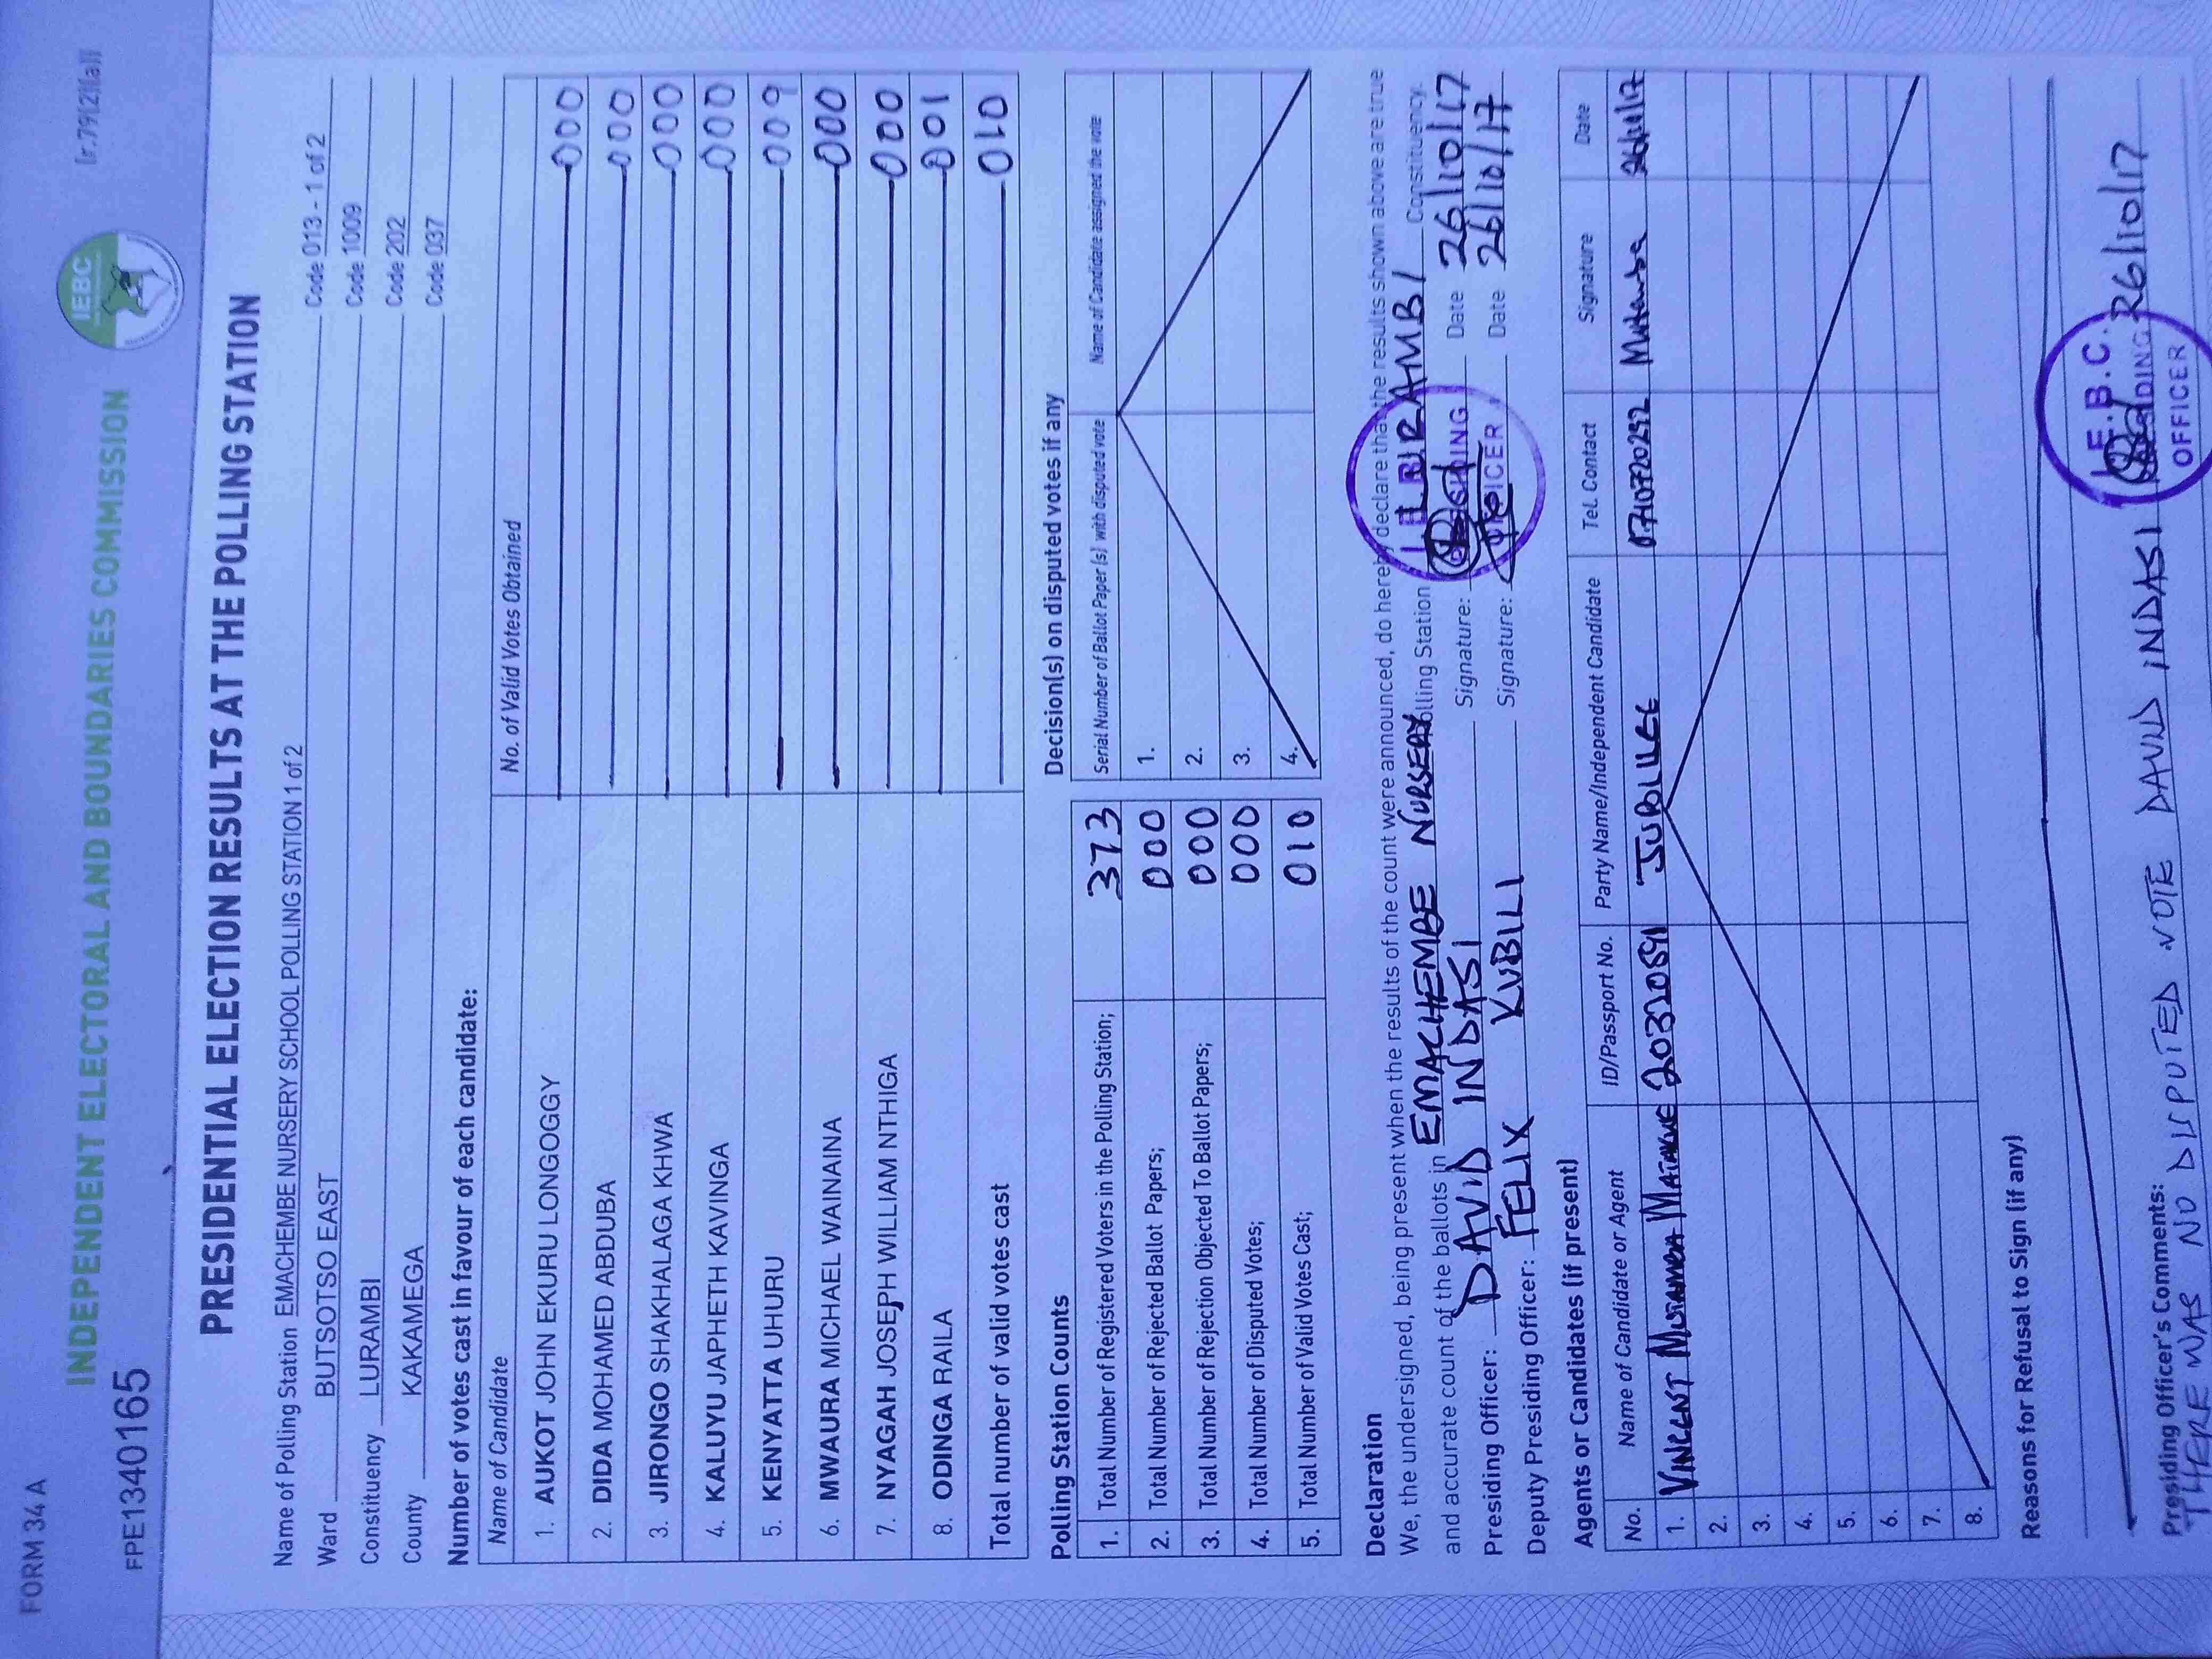 FORM 34 A
INDEPENDENT ELECTORAL AND BOUNDARIES COMMISSION
IEBC
[r.79(2)(a)]
FPE1340165
PRESIDENTIAL ELECTION RESULTS AT THE POLLING STATION
Name of Polling Station EMACHEMBE NURSERY SCHOOL POLLING STATION 1 of 2 Code 013 - 1 of 2
Ward BUTSOTSO EAST Code 1009
Constituency LURAMBI Code 202
County KAKAMEGA Code 037
Number of votes cast in favour of each candidate:
Name of Candidate No. of Valid Votes Obtained
1. AUKOT JOHN EKURU LONGOGGY 000
2. DIDA MOHAMED ABDUBA 000
3. JIRONGO SHAKHALAGA KHWA 000
4. KALUYU JAPHETH KAVINGA 000
5. KENYATTA UHURU 009
6. MWAURA MICHAEL WAINAINA 000
7. NYAGAH JOSEPH WILLIAM NTHIGA 000
8. ODINGA RAILA 001
Total number of valid votes cast 010
Polling Station Counts
1. Total Number of Registered Voters in the Polling Station; 373
2. Total Number of Rejected Ballot Papers; 000
3. Total Number of Rejection Objected To Ballot Papers; 000
4. Total Number of Disputed Votes; 000
5. Total Number of Valid Votes Cast; 010
Decision(s) on disputed votes if any
Serial Number of Ballot Paper (s) with disputed vote Name of Candidate assigned the vote
1.
2.
3.
4.
Declaration
We, the undersigned, being present when the results of the count were announced, do hereby declare that the results shown above are true
and accurate count of the ballots in EMACHEMBE NURSERY Polling Station LURAMBI Constituency.
Presiding Officer: DAVID INDASI Signature: Date 26/10/17
Deputy Presiding Officer: FELIX KUBILI Signature: Date 26/10/17
OFFICER
Agents or Candidates (if present)
No. Name of Candidate or Agent ID/Passport No. Party Name/Independent Candidate Tel. Contact Signature Date
1. VINCENT 20320591 JUBILEE 0710720292 26/10/17
2.
3.
4.
5.
6.
7.
8.
Reasons for Refusal to Sign (if any)
Presiding Officer's Comments:
THERE WAS NO DISPUTED VOTE DAVID INDASI 26/10/17
I.E.B.C.
PRESIDING
OFFICER